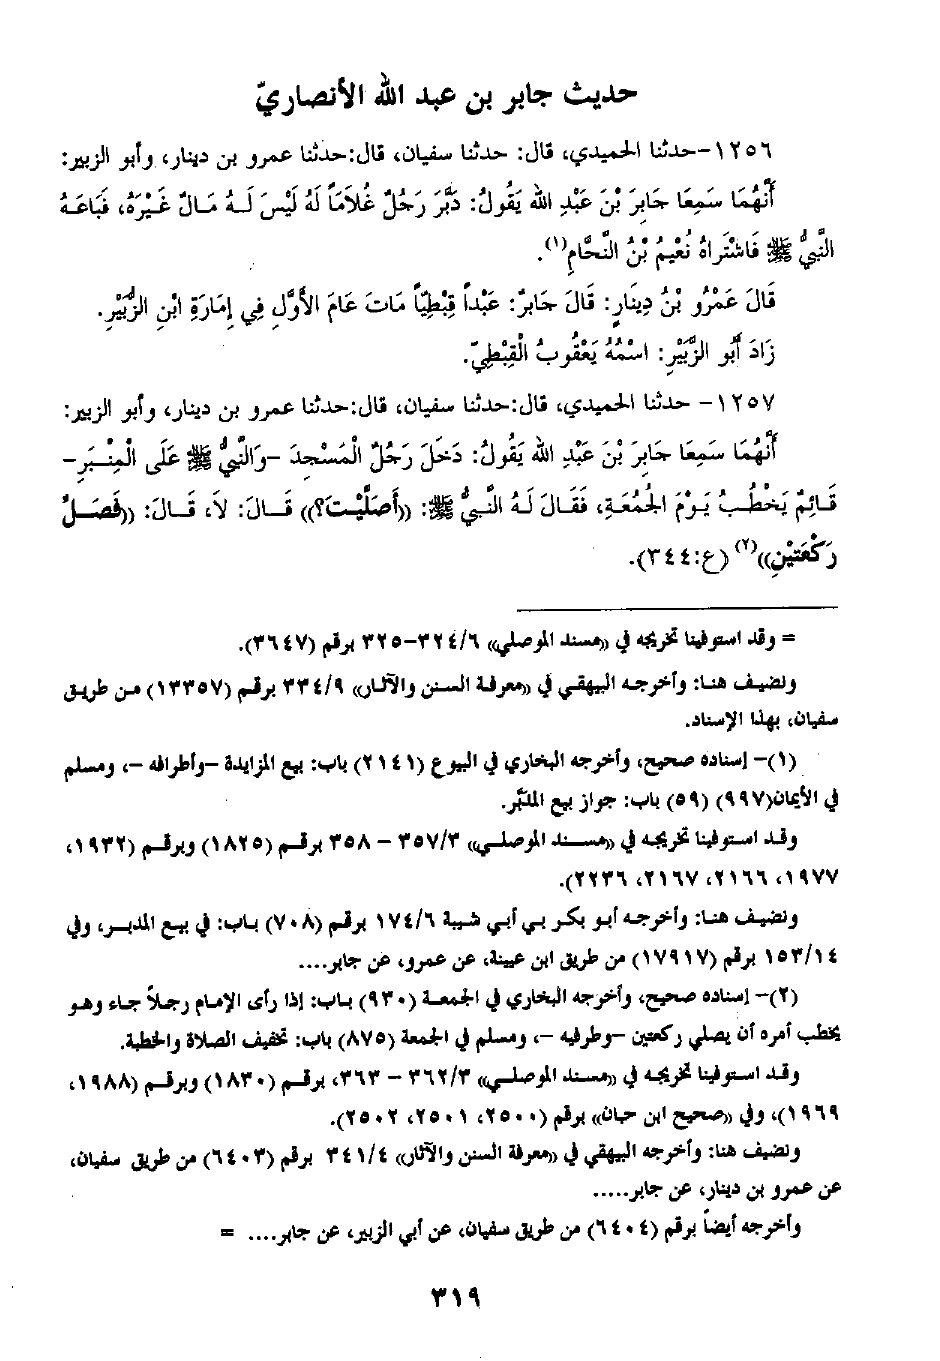 حديث جابر بن عبد الله الأنصاريّ
١٢٥٦-حدثنا الحميدي، قال: حدثنا سفيان، قال:حدثنا عمرو بن دينار، وأبو الزبير:
أَنَّهُمَا سَمِعَا جَابِرَ بْنَ عَبْدِ الله يَقُولُ: دَبَّرَ رَجُلٌ غُلاَمَاً لَهُ لَيْسَ لَـهُ مَـالٌ غَيْرَهُ، فَبَاعَـهُ
النَّبِيُّ ﷺ فَاشْتَرَاهُ نُعَيْمُ بْنُ النَّحَّامِ(١).
قَالَ عَمْرُو بْنُ دِينَارٍ: قَالَ جَابرٌ: عَبْداً قِبْطِيّاً مَاتَ عَامَ الأَوَّلِ فِي إِمَارَةِ ابْنِ الزُّبَيْرِ.
زَادَ أَبُو الزُّبَيْرِ: اسْمُهُ يَعْقُوبُ الْقِبْطِيّ.
١٢٥٧- حدثنا الحميدي، قال:حدثنا سفيان، قال:حدثنا عمرو بن دينار، وأبو الزبير:
أَنَّهُمَا سَمِعَا جَابِرَ بْنَ عَبْدِ الله يَقُولُ: دَخَلَ رَجُلٌ الْمَسْجِدَ -وَالنَّبِيُّ ﷺ عَلَى الْمِنْـبَرِ-
قَائِمٌ يَخْطُبُ يَوْمَ الجُمُعَةِ، فَقَالَ لَهُ النَّبِيُّ ﷺ: ((أَصَلَّيْتَ؟)) قَـالَ: لاَ، قَـالَ: ((فَصَـلِّ
رَكْعَتَيْنِ))(٢) (ع:٣٤٤).
= وقد استوفينا تخريجه في «مسند الموصلي» ٣٢٤/٦-٣٢٥ برقم (٣٦٤٧).
ونضيف هنـا: وأخرجـه البيهقـي في «معرفـة السنن والآثـار» ٣٣٤/٩ برقـم (١٣٣٥٧) مـن طريـق
سفيان، بهذا الإسناد.
(١)- إسناده صحيح، وأخرجه البخاري في البيوع (٢١٤١) باب: بيع المزايدة -وأطرافه -، ومسلم
في الأيمان(٩٩٧) (٥٩) باب: جواز بيع المدبَّر.
وقـد استوفينا تخريجـه في «مسـند الموصلـي» ٣٥٧/٣ - ٣٥٨ برقـم (١٨٢٥) وبرقـم (١٩٣٢،
١٩٧٧، ٢١٦٦، ٢١٦٧، ٢٢٣٦).
ونضيـف هنـا: وأخرجـه أبـو بكـر بـي أبـي شيبة ١٧٤/٦ برقـم (٧٠٨) بـاب: في بيـع المدبـر، وفي
١٥٣/١٤ برقم (١٧٩١٧) من طريق ابن عيينة، عن عمرو، عن جابر....
(٢)- إسناده صحيح، وأخرجه البخاري في الجمعـة (٩٣٠) بـاب: إذا رأى الإمام رجلاً جـاء وهـو
يخطب أمره أن يصلي ركعتين -وطرفيه -، ومسلم في الجمعة (٨٧٥) باب: تخفيف الصلاة والخطبة.
وقـد استوفينا تخريجـه في «مسـند الموصلـي» ٣٦٢/٣ - ٣٦٣، برقـم (١٨٣٠) وبرقـم (١٩٨٨،
١٩٦٩)، وفي «صحيح ابن حبان» برقم (٢٥٠٠، ٢٥٠١، ٢٥٠٢).
ونضيف هنا: وأخرجه البيهقي في «معرفة السنن والآثار» ٣٤١/٤ برقم (٦٤٠٣) من طريق سفيان،
عن عمرو بن دينار، عن جابر.....
وأخرجه أيضاً برقم (٦٤٠٤) من طريق سفيان، عن أبي الزبير، عن جابر.... =
٣١٩